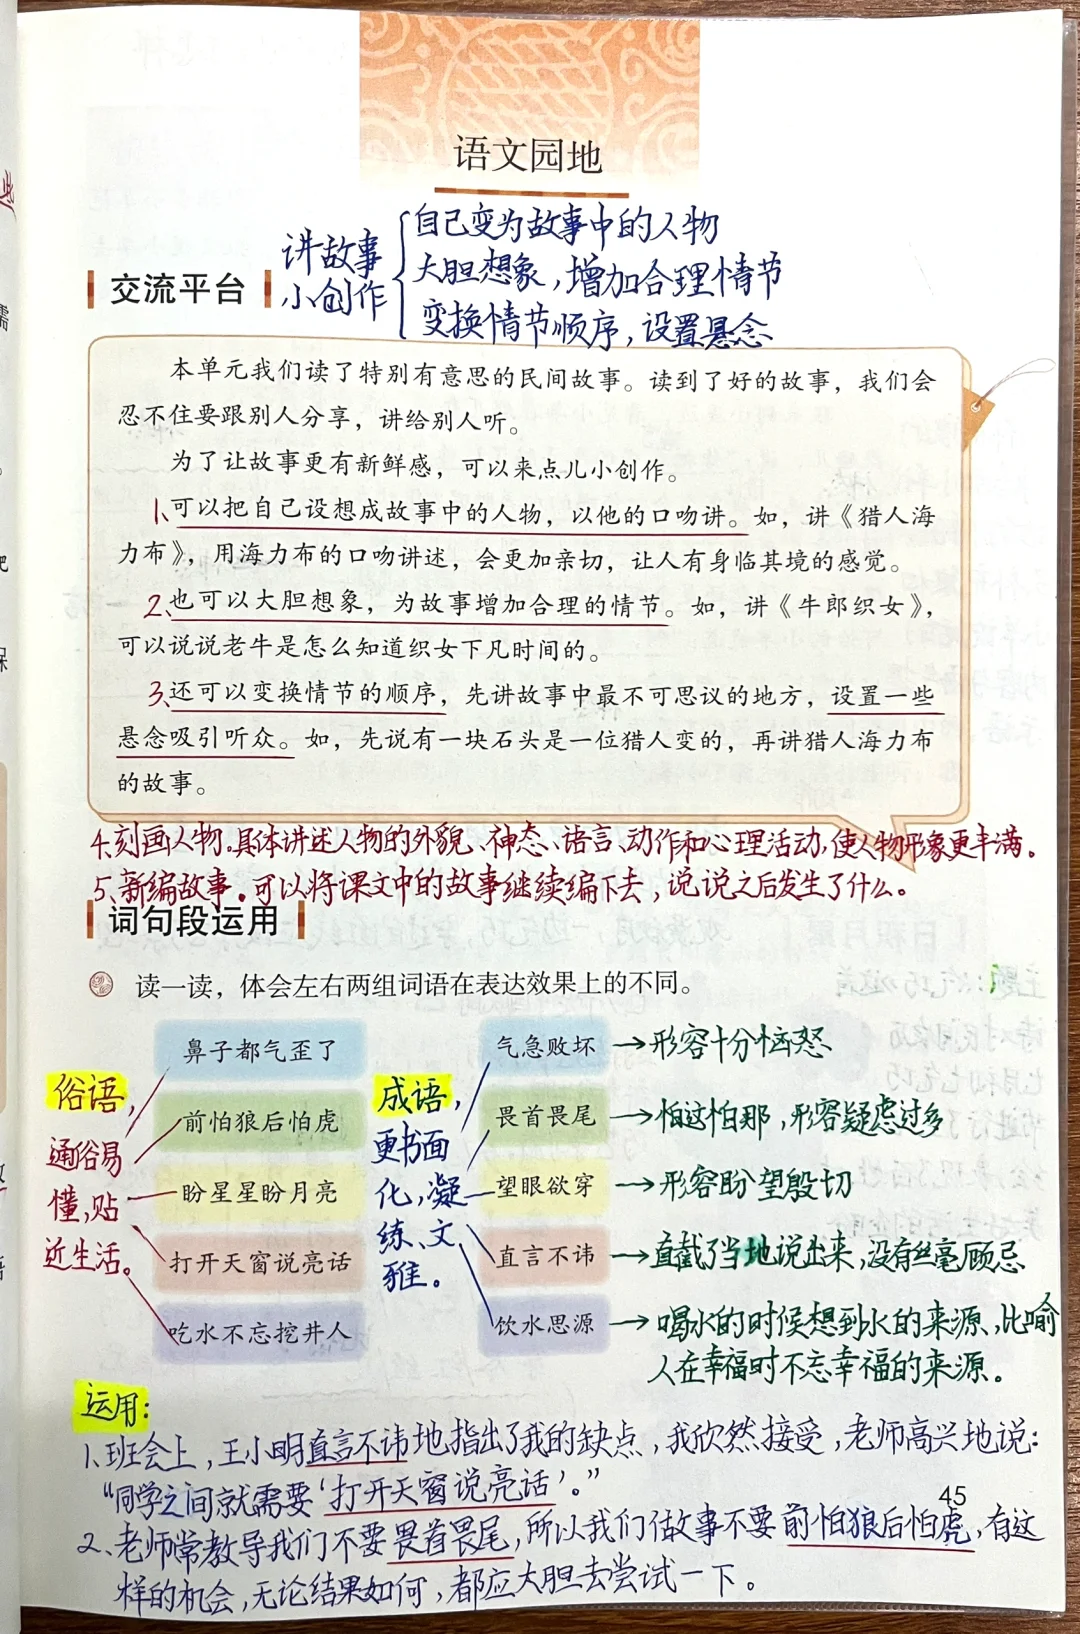 语文园地
讲故事
小创作
自己变为故事中的人物
大胆想象，增加合理情节
变换情节顺序，设置悬念
交流平台
本单元我们读了特别有意思的民间故事。读到了好的故事，我们会
忍不住要跟别人分享，讲给别人听。
为了让故事更有新鲜感，可以来点儿小创作。
1、可以把自己设想成故事中的人物，以他的口吻讲。如，讲《猎人海
力布》，用海力布的口吻讲述，会更加亲切，让人有身临其境的感觉。
2、也可以大胆想象，为故事增加合理的情节。如，讲《牛郎织女》，
可以说说老牛是怎么知道织女下凡时间的。
3、还可以变换情节的顺序，先讲故事中最不可思议的地方，设置一些
悬念吸引听众。如，先说有一块石头是一位猎人变的，再讲猎人海力布
的故事。
4、刻画人物。具体讲述人物的外貌、神态、语言、动作和心理活动，使人物形象更丰满。
5、新编故事。可以将课文中的故事继续编下去，说说之后发生了什么。
词句段运用
读一读，体会左右两组词语在表达效果上的不同。
俗语，
通俗易
懂，贴
近生活。
鼻子都气歪了
前怕狼后怕虎
盼星星盼月亮
打开天窗说亮话
吃水不忘挖井人
成语，
更书面
化，凝
练、文
雅。
气急败坏→形容十分恼怒
畏首畏尾→怕这怕那，形容疑虑过多
望眼欲穿→形容盼望殷切
直言不讳→直截了当地说出来，没有丝毫顾忌
饮水思源→喝水的时候想到水的来源、比喻
人在幸福时不忘幸福的来源。
运用：
1、班会上，王小明直言不讳地指出了我的缺点，我欣然接受，老师高兴地说：
“同学之间就需要‘打开天窗说亮话’。”
45
2、老师常教导我们不要畏首畏尾，所以我们做故事不要前怕狼后怕虎，有这
样的机会，无论结果如何，都应大胆去尝试一下。